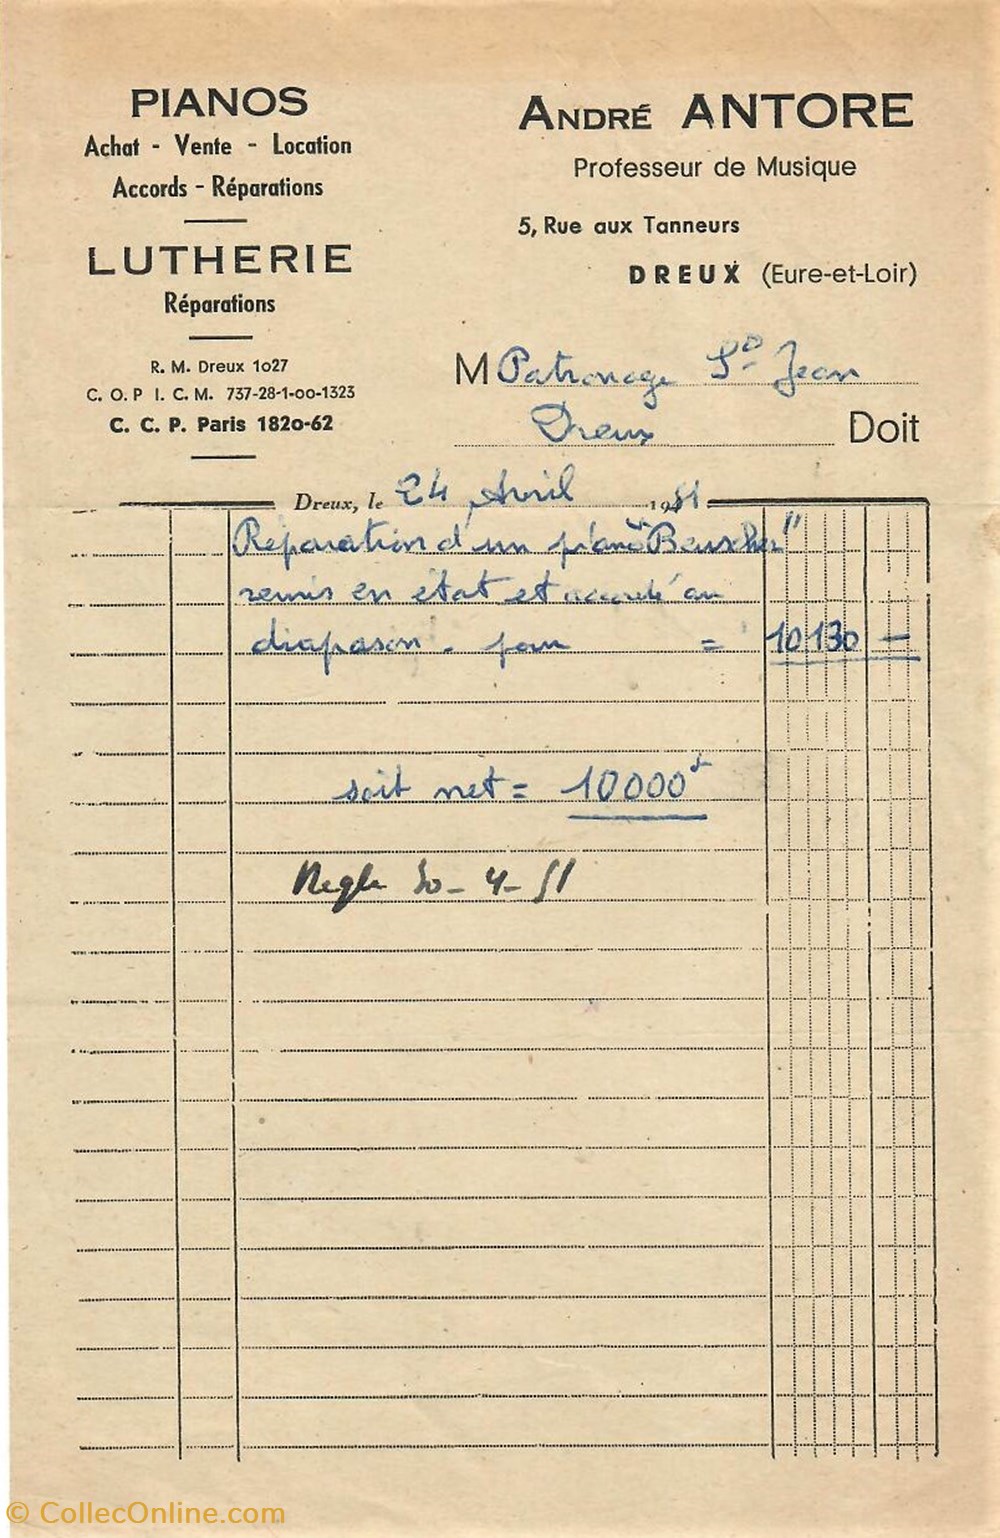 PIANOS
Achat - Vente - Location
Accords - Réparations
LUTHERIE
Réparations
R. M. Dreux 1027
C. O. P I. C. M. 737-28-1-00-1323
C. C. P. Paris 1820-62
ANDRÉ ANTORE
Professeur de Musique
5, Rue aux Tanneurs
DREUX (Eure-et-Loir)
M Patronage St Jean
Dreux Doit
Dreux, le 24 Avril 1951
Réparation d'un piano "Beuscher"
remis en état et accordé au
diapason. pour = 10 130 —
soit net = 10000
Regle 30-4-51
© CollecOnline.com